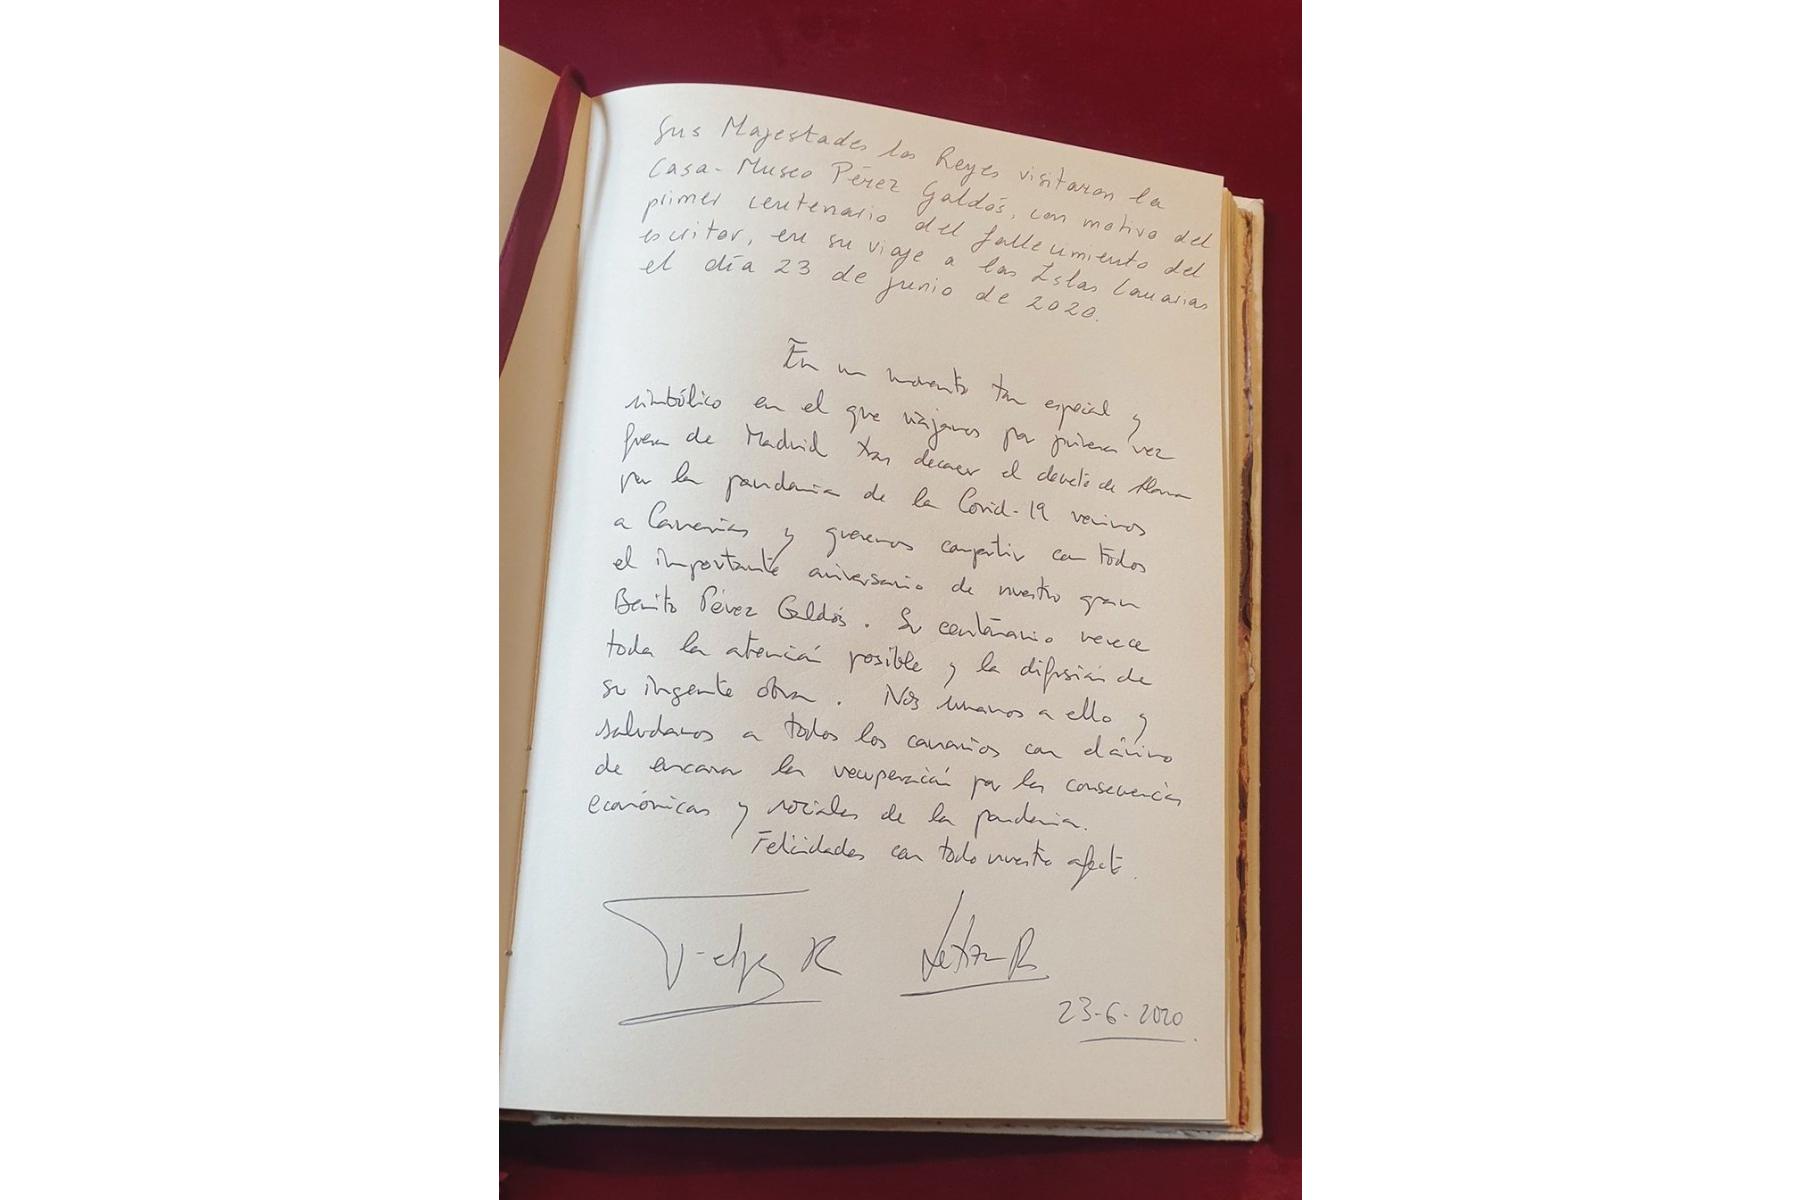 Sus Majestades los Reyes visitaron la
Casa-Museo Pérez Galdós, con motivo del
primer centenario del fallecimiento del
escritor, en su viaje a las Islas Canarias
el día 23 de junio de 2020.
En un momento tan especial y
simbólico en el que viajamos por primera vez
fuera de Madrid tras decaer el decreto de Alarma
por la pandemia de la Covid-19 venimos
a Canarias y queremos compartir con todos
el importante aniversario de nuestro gran
Benito Pérez Galdós. Su centenario merece
toda la atención posible y la difusión de
su ingente obra. Nos unimos a ello y
saludamos a todos los canarios con el ánimo
de encarar la recuperación por las consecuencias
económicas y sociales de la pandemia.
Felicidades con todo nuestro afecto.
Felipe R Letizia R
23-6-2020